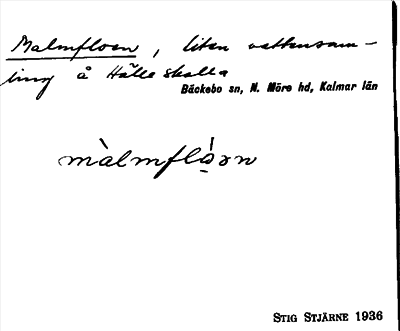 Malmfloen, liten vattensam-
ling å Hälleskalla
Bäckebo sn, N. Möre hd, Kalmar län
màlmfló̤ən
STIG STJÄRNE 1936